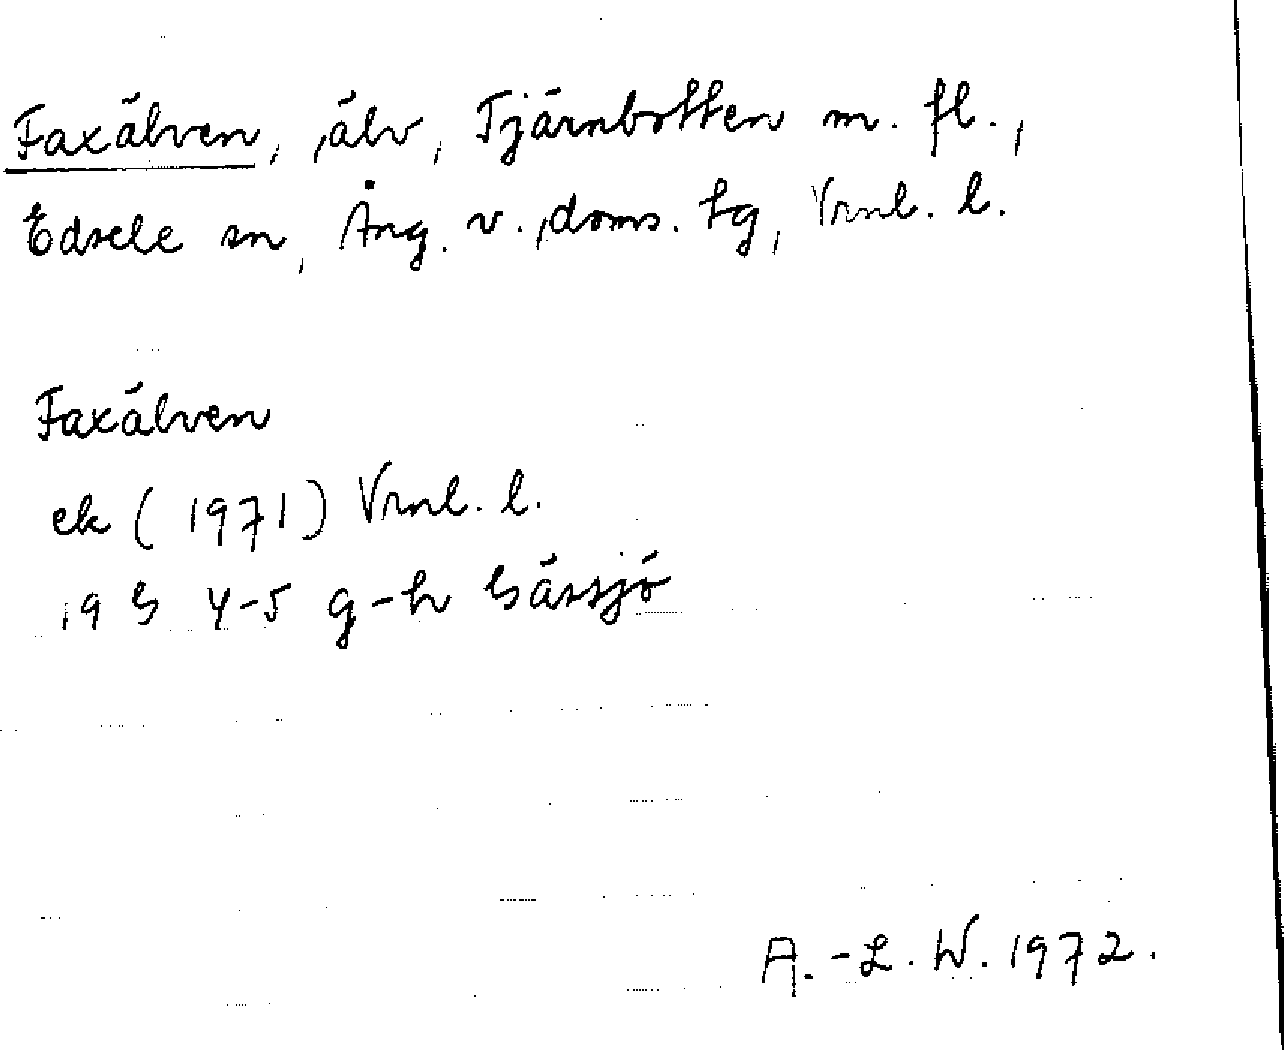 Faxälven, älv, Tjärnbotten m. fl.,
Edsele sn, Ång. v. doms. tg, Vrnl. l.
Faxälven
ek (1971) Vrnl. l.
19 G 4-5 g-h Gåssjö
A.-L. W. 1972.